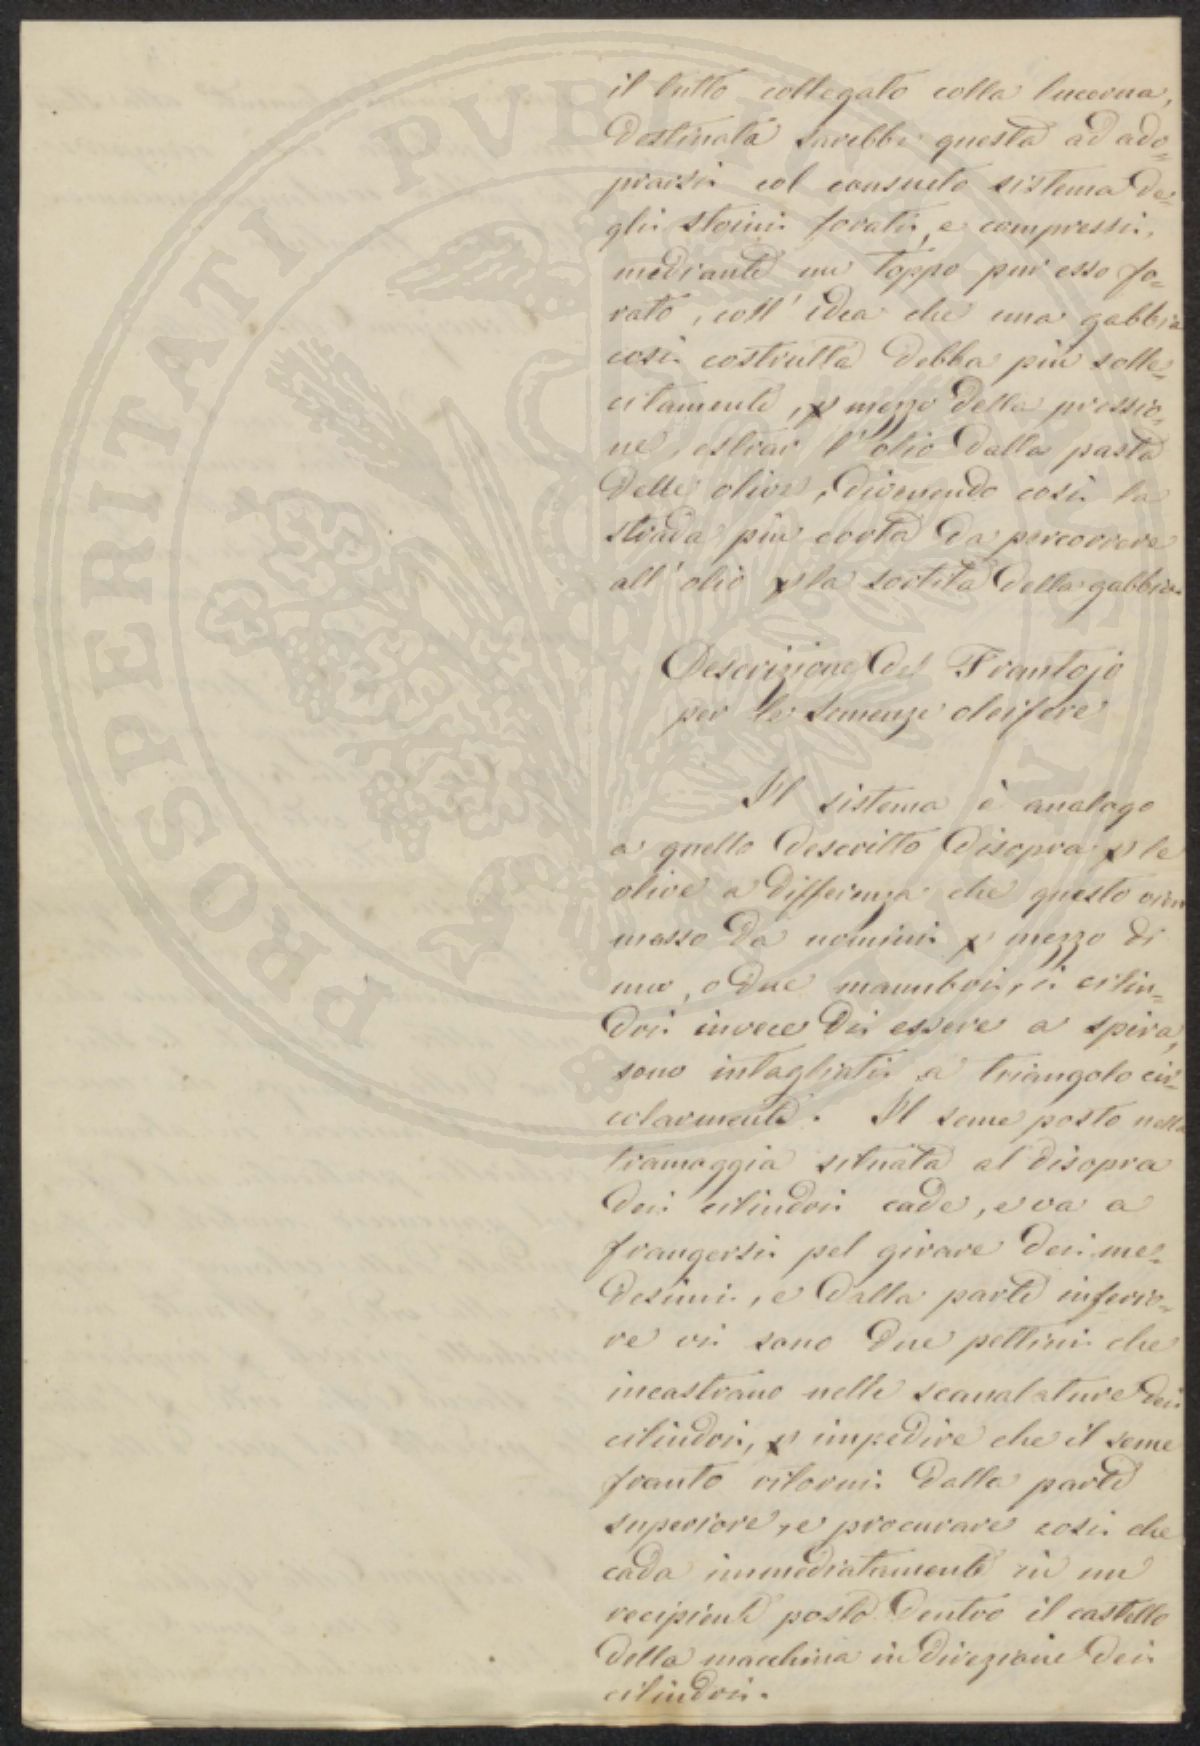 il tutto collegato colla lucerna,
destinata sarebbe questa ad ado=
prarsi col consueto sistema de=
gli stoini forati, e compressi,
mediante un toppo pur esso fo=
rato, coll' idea che una gabbia
così costrutta debba più solle=
citamente, p mezzo della pressio=
ne, estrar l'olio dalla pasta
delle olive, divenendo così la
strada più corta da percorrere
all' olio p la sortita della gabbia.
Descrizione del Frantojo
per le semenze oleifere
Il sistema è analogo
a quello descritto disopra p le
olive a differenza che questo vien
mosso da uomini p mezzo di
uno, o due manubri, i cilin=
dri invece di essere a spira,
sono intagliati a triangolo cir=
colarmente. Il seme posto nella
tramoggia situata al disopra
dei cilindri cade, e va a
frangersi pel girare dei me=
desimi, e dalla parte inferio=
re vi sono due pettini che
incastrano nelle scanalature dei
cilindri, p impedire che il seme
franto ritorni dalla parte
superiore, e procurare così che
cada immediatamente in un
recipiente posto dentro il castello
della macchina in direzione dei
cilindri.
PROSPERITATI PVBLICAE